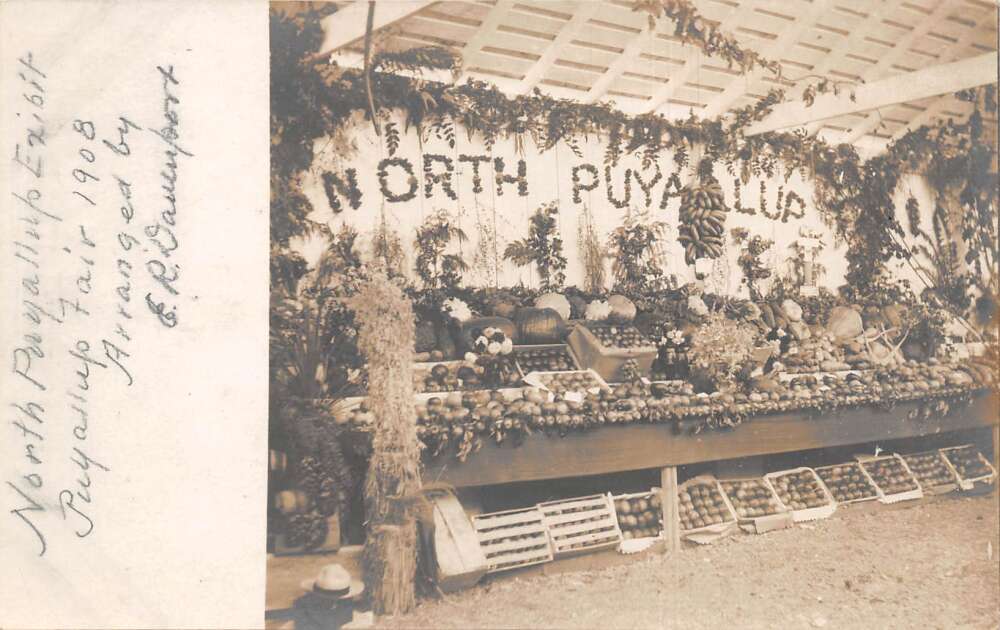 North Puyallup Exibit
Puyallup Fair 1908
Arranged by
E. R. Davenport
NORTH PUYALLUP